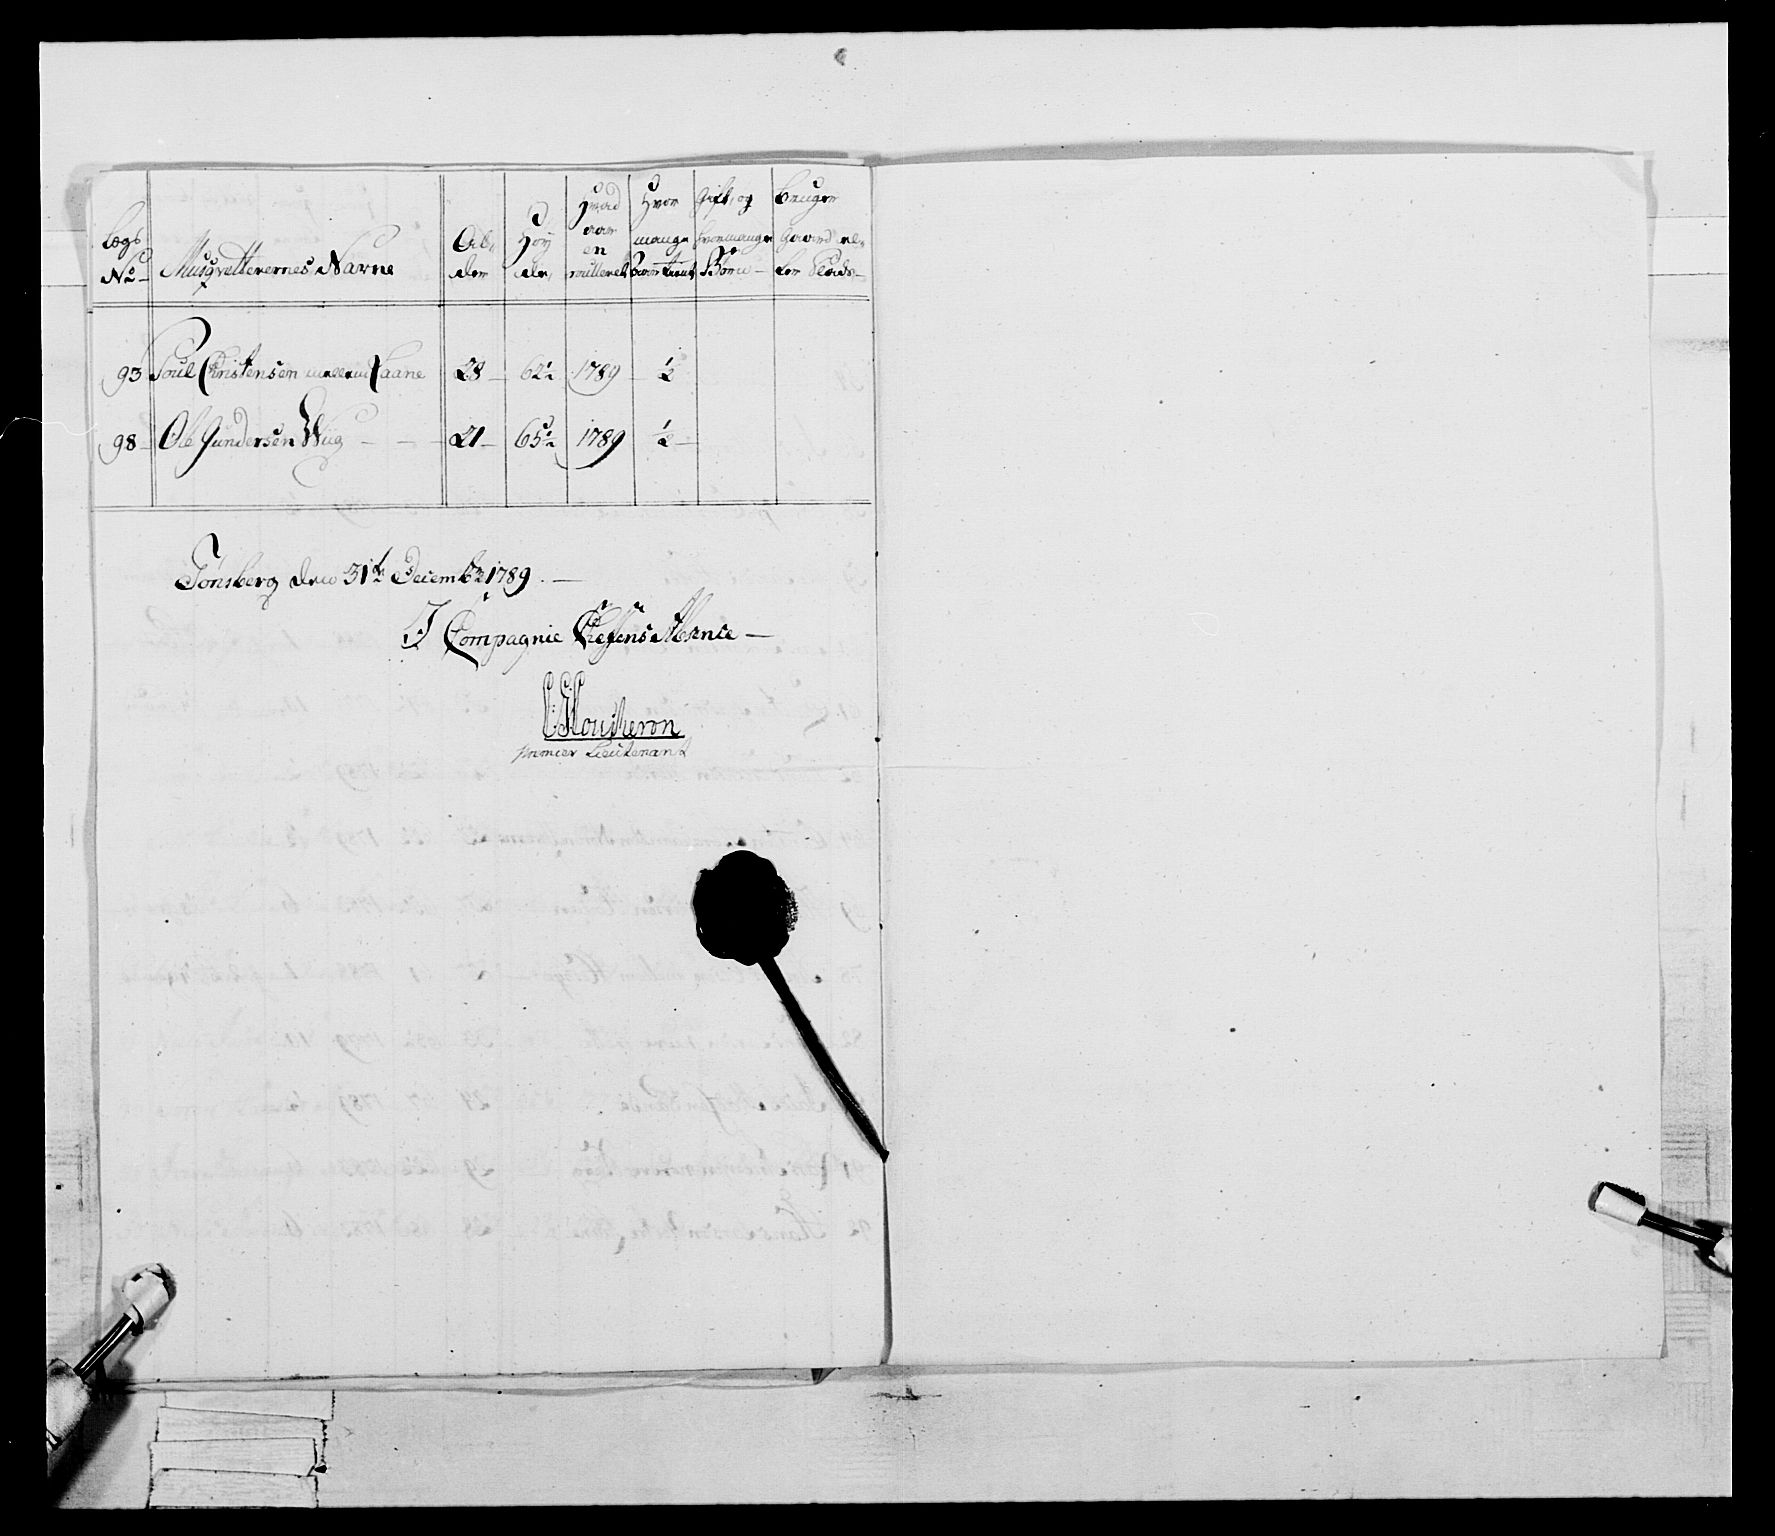 Lægs No Musqvetterernes Navne Alder Høyde Hvad aar enroulleret Hvor mange Aar tient Gift, og hvormange Børn Bruger Gaard eller Plads
93 Poul Christensen mellem Laane 28 62½ 1789 ½
98 Ole Gundersen Wiig 21 65½ 1789 ½
Tønsberg den 31te Decembr 1789.
I Compagnie Chefens Absence
Moucheron
Premier Lieutenant